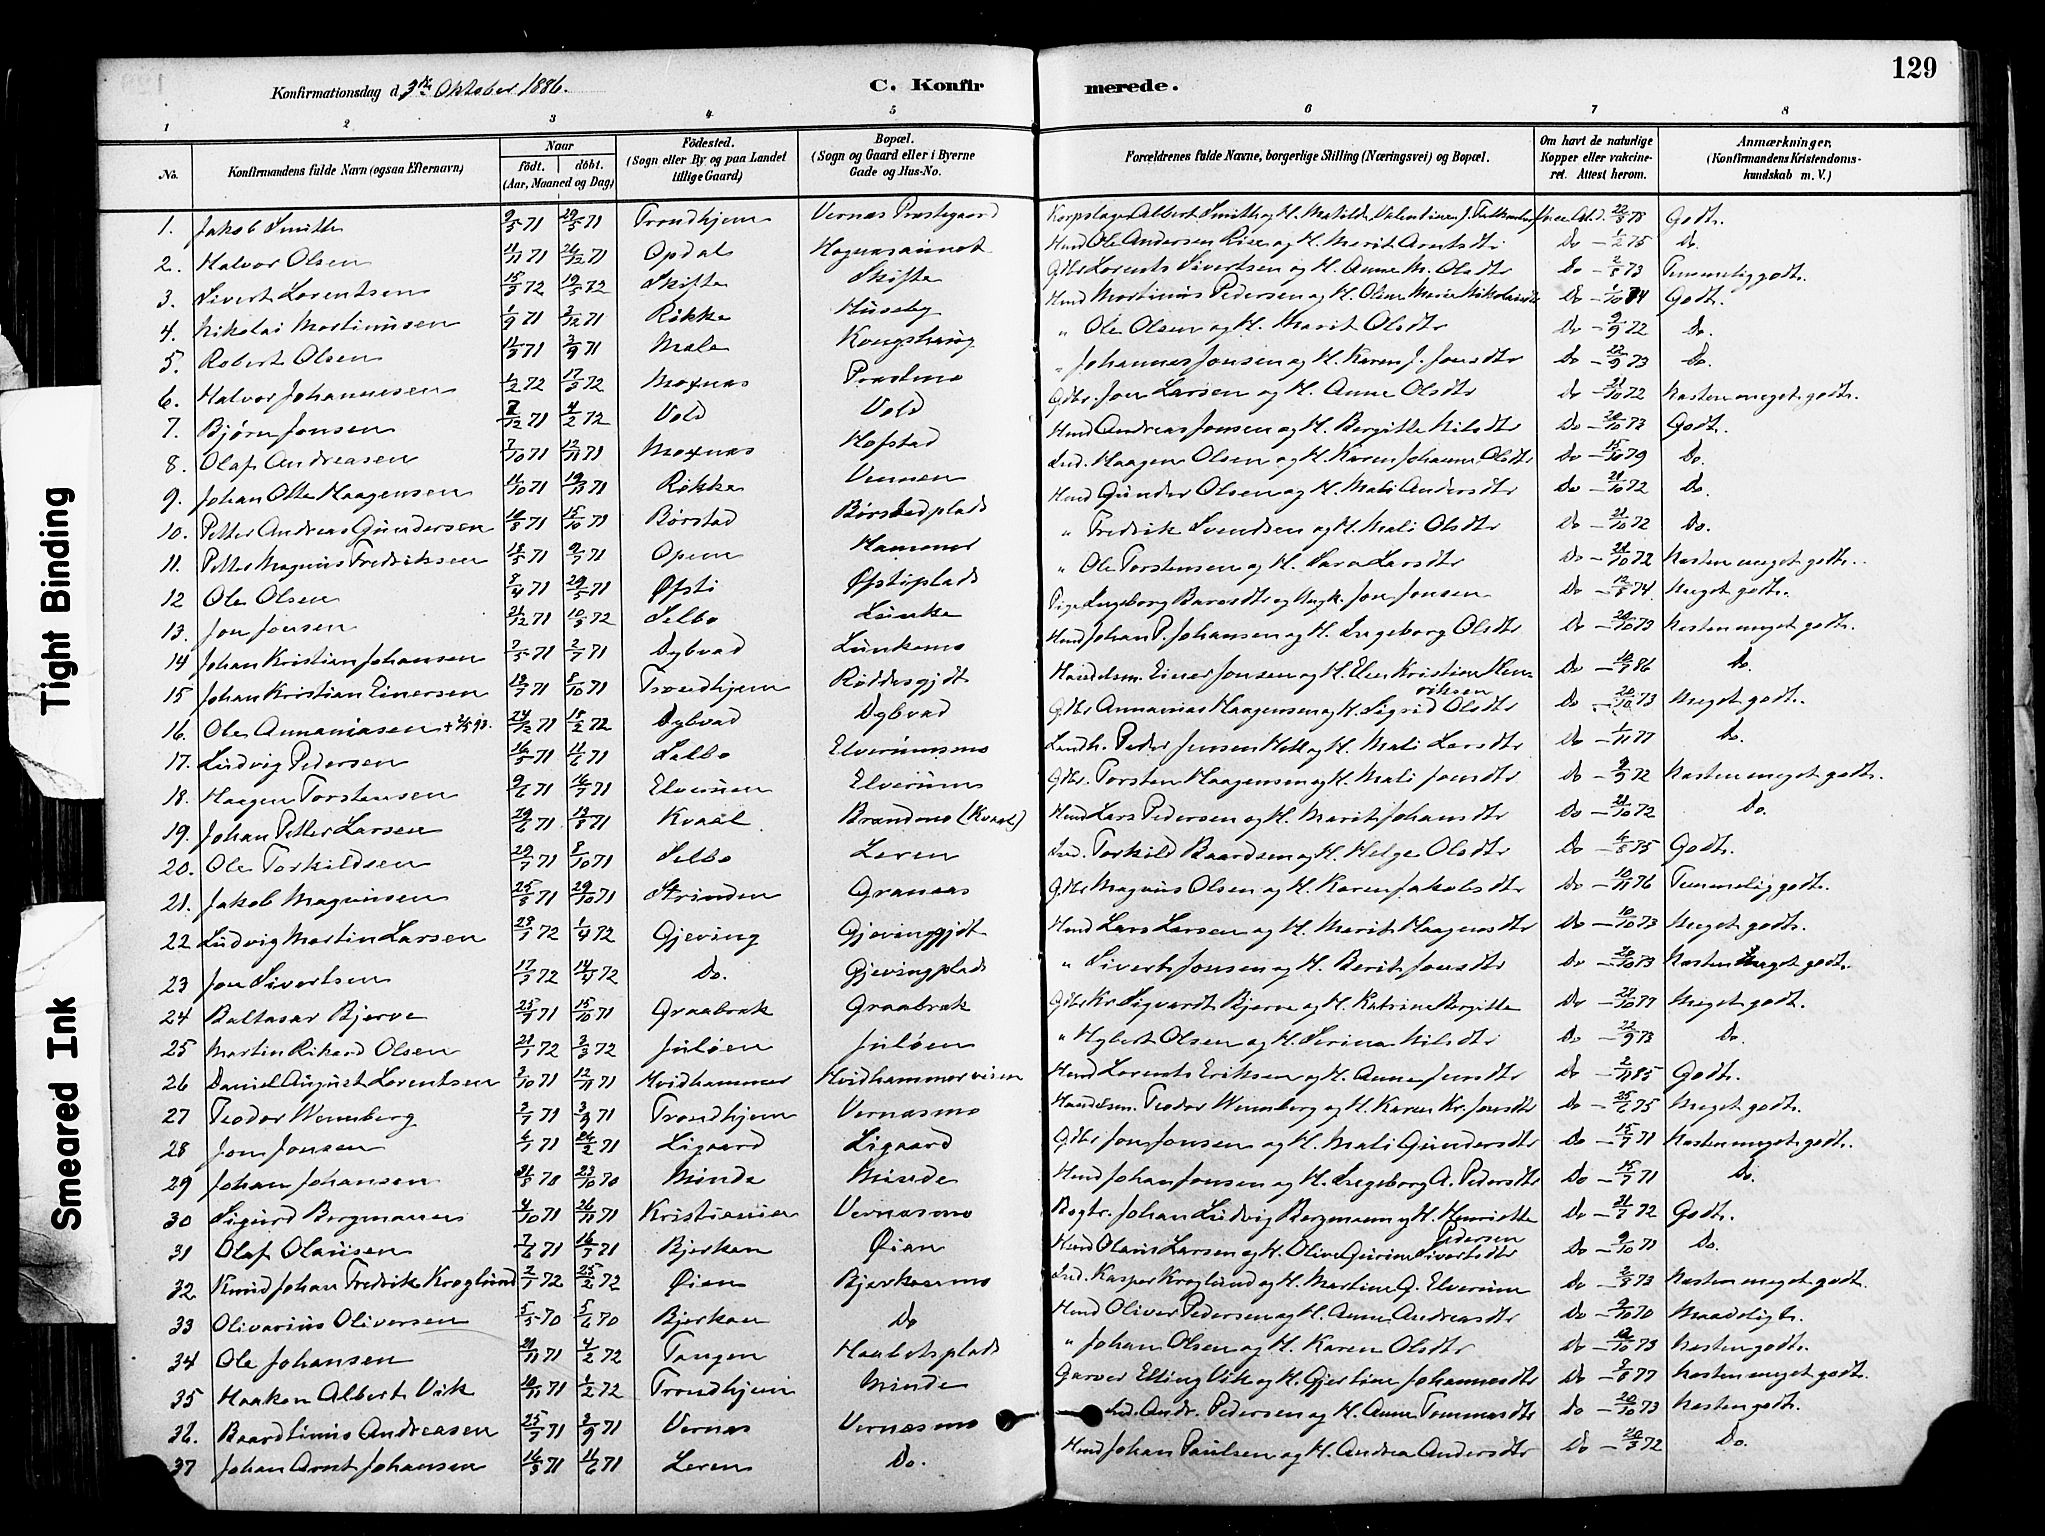 129
Konfirmationsdag d. 3die Oktober 1886.
C. Konfirmerede.
1 2 3 4 5 6 7 8
No. Konfirmandens fulde Navn (ogsaa Efternavn)
Naar
födt. döbt.
(Aar, Maaned og Dag)
Födested.
(Sogn eller By og paa Landet tillige Gaard)
Bopæl.
(Sogn og Gaard eller i Byerne Gade og Hus-No.
Forældrenes fulde Navne, borgerlige Stilling (Næringsvei) og Bopæl.
Om havt de naturlige Kopper eller vakcineret. Attest herom.
Anmærkninger,
(Konfirmandens Kristendomskundskab m. V.)
1. Jakob Smith 9/5 71 29/5 71 Trondhjem Vernæs Præstegaard Godt.
2. Halvor Olsen 11/11 71 26/12 71 Opdal Ole Andersen Rise og H. Marit Arntsdtr Do – 1/2 75 Do.
3. Sivert Lorentsen 15/3 72 19/5 72 Skifte Skifte Gdbr Lorents Sivertsen og H. Anne M. Olsdtr Do – 2/8 73 Temmelig godt.
4. Nikolai Martinusen 1/9 71 3/12 71 Røkke Husby Hmd Martinus Pedersen og H. Oline Marie Do – 1/10 74 Godt.
5. Robert Olsen 11/5 71 3/9 71 Mæle Kongshaug " Ole Olsen og H. Marit Olsdtr Do – 9/9 72 Do.
6. Halvor Johannesen 1/2 72 17/3 72 Moxnæs Præstmo " Johannes Jonsen og H. Karen J. Jonsdtr Do – 22/9 73 Do.
7. Bjørn Jonsen 7/12 71 4/2 72 Vold Vold Gdbr. Jon Larsen og H. Anne Olsdtr Do – 21/10 72 Næsten meget godt.
8. Olaf Andreasen 7/10 71 12/11 71 Moxnæs Hofstad Hmd Andreas Jonsen og H. Bergitte Nilsdtr Do – 20/10 73 Godt.
9. Johan Otto Haagensen 11/10 71 19/11 71 Røkke Vennen Ind. Haagen Olsen og H. Karen Johanne Olsdtr Do – 15/10 79 Do.
10. Petter Andreas Gundersen 16/8 71 15/10 71 Børstad Børstadplads Hmd Gunder Olsen og H. Mali Andersdtr Do – 21/10 72 Do.
11. Petter Magnus Fredriksen 18/5 71 9/7 71 Opem Hammer " Fredrik Svendsen og H. Mali Olsdtr Do – 21/10 72 Do.
12 Ole Olsen 8/4 71 29/5 71 Øfsti Øfstiplads " Ole Torstensen og H. Sara Larsdtr Do – 21/10 72 Næsten meget godt.
13. Jon Jonsen 21/12 71 10/3 72 Selbo Lunke Pige Ingeborg Baardsdtr og Ungk. Jon Jonsen Do – 12/5 74. Meget godt.
14 Johan Kristian Johansen 7/5 71 2/7 71 Dybvad Lunkemo Hmd Johan P. Johansen og H. Ingeborg Olsdtr Do – 20/10 73 Næsten meget godt.
15 Johan Kristian Einersen 18/7 71 8/10 71 Trondhjem Røddesgjdt Handelsm. Einer Jonsen og H. Elen Kristine Henriksen Do – 10/7 86 Do.
16. Ole Annaniasen 24/12 71 18/2 72 Dybvad Dybvad Gdbr Annanias Haagensen og H. Sigrid Olsdtr Do – 20/10 73 Meget godt.
17. Ludvig Pedersen 16/5 71 11/6 71 Selbo Elverumsmo Landh. Peder Jensen Hell og H. Mali Larsdtr Do – 1/11 77 Do.
18. Haagen Torstensen 9/6 71 16/7 71 Elverum Elverum Gdbr. Torsten Haagensen og H. Mali Jonsdtr Do – 9/9 72 Næsten meget godt.
19. Johan Petter Larsen 29/6 71 13/8 71 Kvaal Brandmo (Kvaal) Hmd Lars Pedersen og H. Marit Johansdtr Do – 21/10 72 Do.
20. Ole Torkildsen 29/7 71 8/10 71 Selbo Leren Ind. Torkild Baardsen og H. Helge Olsdtr Do – 6/8 75 Godt.
21. Jakob Magnusen 25/8 71 29/10 71 Strinden Granaas Gdbr Magnus Olsen og H. Karen Jakobsdtr Do – 10/11 76 Temmelig godt.
22 Ludvig Martin Larsen 23/1 72 1/4 72 Gjeving Gjevinggjdt Hmd Lars Larsen og H. Marit Haagensdtr Do – 10/10 73 Meget godt.
23 Jon Sivertsen 17/3 72 14/4 72 Do. Gjevingplads " Sivert Jonsen og H. Berit Jonsdtr Do – 20/10 73 Næsten meget godt.
24 Baltasar Bjerve 25/9 71 15/10 71 Graabræk Graabræk Gdbr Kr. Sigvardt Bjerve og H. Katrine Bergitte Do – 22/10 77 Meget godt.
25 Martin Rikard Olsen 21/1 72 3/3 72 Juløen Juløen " Hybert Olsen og H. Serina Nilsdtr Do – 22/9 73 Do.
26 Daniel August Lorentsen 3/10 71 12/11 71 Hvidhammer Hmd Lorents Eriksen og H. Anne Jensdtr Do – 2/11 85 Godt.
27 Teodor Wennberg 2/7 71 3/9 71 Trondhjem Vernæsmo Handelsm. Teodor Wennberg og H. Karen Kr. Jonsdtr Do – 25/6 75 Meget godt.
28 Jon Jonsen 6/1 71 26/2 71 Ligaard Ligaard Gdbr Jon Jonsen og H. Mali Gundersdtr Do – 15/7 71 Næsten meget godt.
29 Johan Johansen 31/8 70 23/10 70 Minde Minde Hmd Johan Jonsen og H. Ingeborg A. Pedersdtr Do – 15/7 71 Do.
30 Sigurd Bergmann 4/10 71 26/11 71 Kristiania Vernæsmo Bogtr. Johan Ludvig Bergmann og H. Henriette Pedersen Do – 21/7 72 Godt.
31 Olaf Olausen 7/6 71 16/7 71 Bjerkan Øian Hmd Olaus Larsen og H. Olive Gurine Sivertsdtr Do – 9/10 71 Do.
32. Knud Johan Fredrik Kroglund 2/1 72 25/2 72 Øien Bjerkanmo Ind. Kasper Kroglund og H. Martine G. Elverum Do – 2/8 73 Næsten meget godt.
33 Olivarius Oliversen 5/5 70 5/6 70 Bjerkan Do Hmd Oliver Pedersen og H. Anne Andreasdtr Do – 9/10 70 Maadeligt.
34 Ole Johansen 21/11 71 4/2 72 Tangen Haabetsplads " Johan Olsen og H. Karen Olsdtr Do – 12/10 73 Næsten godt.
35 Haakon Albert Vik 10/11 71 1/2 72 Trondhjem Minde Garver Elling Vik og H. Gjertine Johannesdtr Do – 2/8 77 Næsten meget godt.
36. Baard Linus Andreasen 25/7 71 3/9 71 Vernæs Vernæsmo Ind. Andr. Pedersen og H. Anne Tommasdtr Do – 20/10 73 Næsten godt.
37 Johan Arnt Johansen 16/3 71 11/6 71 Leren Do. Hmd Johan Paulsen og H. Andrea Andersdtr Do – 20/3 72 Do.
Tight Binding
Smeared Ink